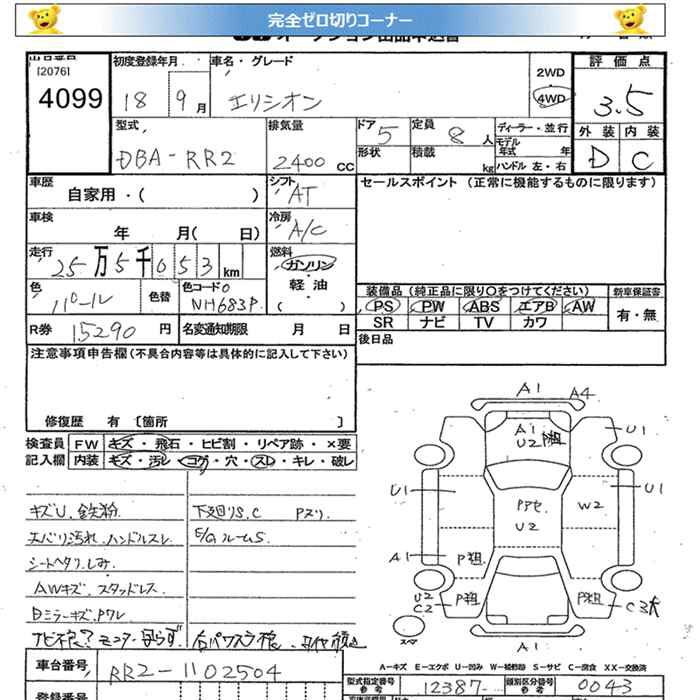 完全ゼロ切りコーナー
出品番号
120761
4099
初度登録年月
18 9月
車名・グレード
エリシオン
2WD
4WD
評価点
3.5
外装 内装
D C
型式
DBA-RR2
排気量
2400 CC
ドア 5
定員 8人
形状
積載 kg
ディーラー・並行
モデル年式 年
ハンドル 左・右
車歴
自家用・( )
シフト AT
セールスポイント (正常に機能するものに限ります)
車検
年 月( 日)
冷房 A/C
走行
25万5千053km
燃料
ガソリン
軽油
( )
色
パール
色替
色コードNo
NH683P
装備品(純正品に限り○をつけてください)
新車保証書
PS PW ABS エアB AW
SR ナビ TV カワ
有・無
R券 15290円
名変通知期限 月 日
後日品
注意事項申告欄(不具合内容等は具体的に記入して下さい)
修復歴 有 〔箇所 〕
検査員 FW キズ・飛石・ヒビ割・リペア跡・×要
記入欄 内装 キズ・汚レ・コゲ・穴・スレ・キレ・破レ
キズU、鉄粉
天バリ汚れ、ハンドルスレ
シートヘタリ、しみ
AWキズ、スタッドレス
Dミラーキズ、Pワレ
下廻りS.C Pヌリ
E/GルームS
車台番号
RR2-1102504
登録番号
A1
A4
A1
U2
U1
U1
U1
Pアセ
U2
W2
A1
P担
U2
C2
C3大
A1
スマ
A-キズ E-エクボ U-凹み W-補修跡 S-サビ C-腐食 XX-交換済
型式指定番号 参考
12387
類別区分番号 参考
0043